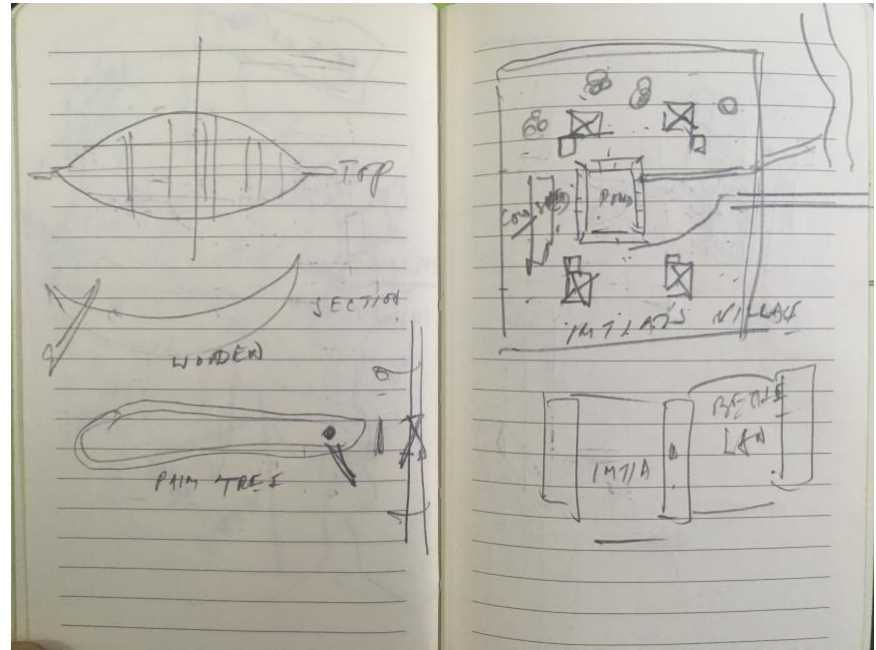 TOP
SECTION
WOODEN
PALM TREE
POND
COW
IMTIAZ'S VILLAGE
IMTIA